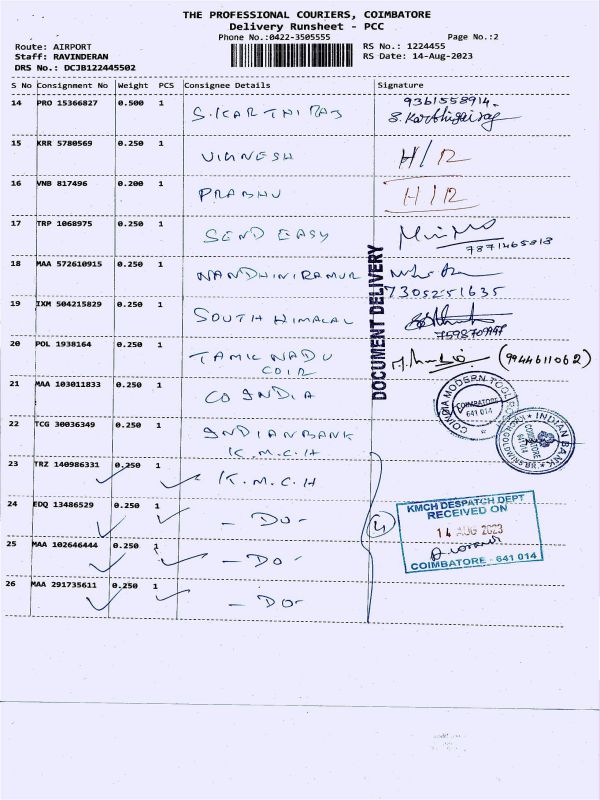 THE PROFESSIONAL COURIERS, COIMBATORE
Delivery Runsheet - PCC
Phone No.:0422-3505555 Page No.:2
Route: AIRPORT RS No.: 1224455
Staff: RAVINDERAN RS Date: 14-Aug-2023
DRS No.: DCJB122445502
S No Consignment No Weight PCS Consignee Details Signature
14 PRO 15366827 0.500 1 S.KARTHI RAJ 9361558914.
S. Karthigairaj
15 KRR 5780569 0.250 1 VIGNESH H/R
16 VNB 817496 0.200 1 PRABHU H/R
17 TRP 1068975 0.250 1 SEND EASY
18 MAA 572610915 0.250 1 NANDHINIRAMUR
7305251635
19 IXM 504215829 0.250 1 SOUTH HIMALAL
DOCUMENT DELIVERY
20 POL 1938164 0.250 1 TAMIL NADU COIR (9944611062)
21 MAA 103011833 0.250 1 COINDIA
COINDIA MODERN TOOL
COIMBATORE
641 014
22 TCG 30036349 0.250 1 INDIAN BANK
K.M.C.H
INDIAN BANK
COIMBATORE
641 014
23 TRZ 140986331 0.250 1 K.M.C.H
24 EDQ 13486529 0.250 1 - DO -
25 MAA 102646444 0.250 1 - DO -
26 MAA 291735611 0.250 1 - DO -
4
KMCH DESPATCH DEPT
RECEIVED ON
14 AUG 2023
COIMBATORE - 641 014